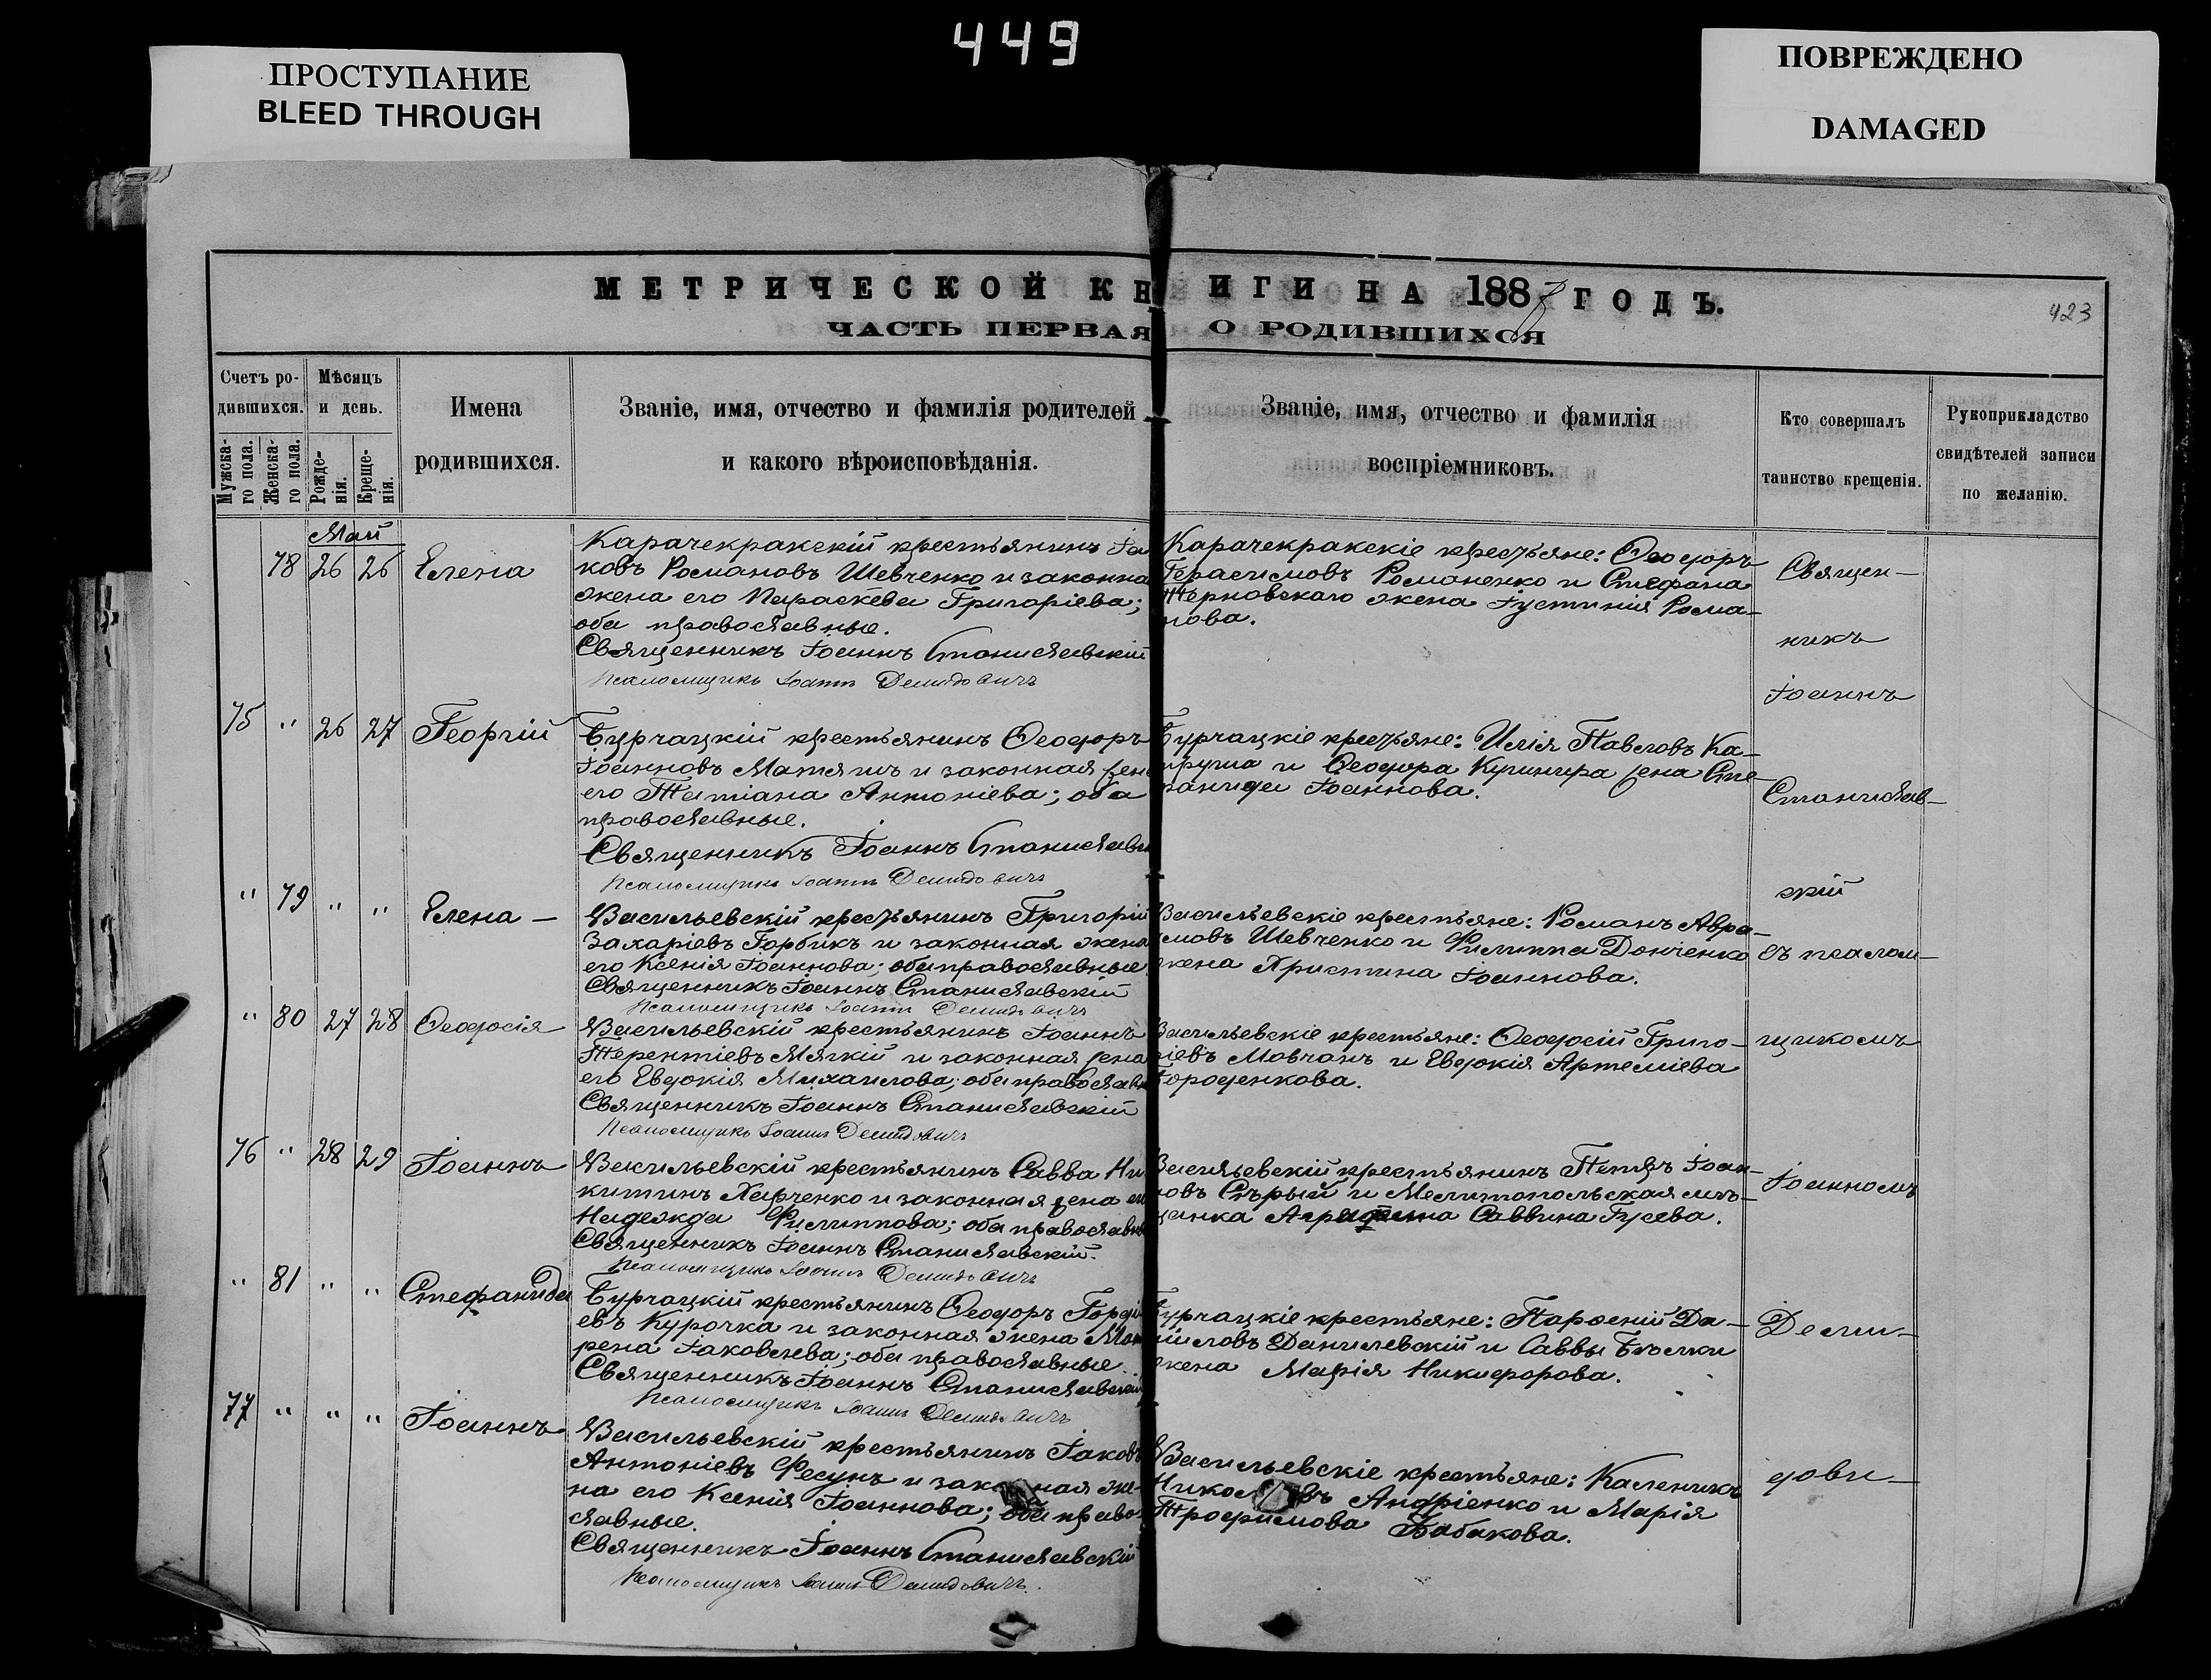 449
ПРОСТУПАНИЕ
BLEED THROUGH
ПОВРЕЖДЕНО
DAMAGED
МЕТРИЧЕСКОЙ КНИГИ НА 1887 ГОДЪ.
423
ЧАСТЬ ПЕРВАЯ О РОДИВШИХСЯ
Счетъ ро-
дившихся.
Мужска-
го пола.
Женска-
го пола.
Мѣсяцъ
и день.
Рожде-
нія.
Креще-
нія.
Имена
родившихся.
Званіе, имя, отчество и фамилія родителей
и какого вѣроисповѣданія.
Званіе, имя, отчество и фамилія
воспріемниковъ.
Кто совершалъ
таинство крещенія.
Рукоприкладство
свидѣтелей записи
по желанію.
Май
78 26 26 Елена
Карачекракскій крестьянинъ Іа
ковъ Романовъ Шевченко и законна
жена его Параскева Григоріева;
оба православные.
Священникъ Іоаннъ Станиславскій
Псаломщикъ Іоаннъ Демидовичъ
Карачекракскіе крестьяне: Ѳеодоръ
Герасимовъ Романенко и Стефана
Терновскаго жена Іустинія Рома-
нова.
75 " 26 27 Георгій
Бурчацкій крестьянинъ Ѳеодоръ
Іоанновъ Матяшъ и законная жен
его Татіана Антоніева; оба
православные.
Священникъ Іоаннъ Станиславс
Псаломщикъ Іоаннъ Демидовичъ
Бурчацкіе крестьяне: Илія Павловъ Ка-
пруша и Ѳеодора Кушнира жена Сте-
фанида Іоаннова.
" 79 " " Елена —
Васильевскій крестьянинъ Григорій
Захаріевъ Горбикъ и законная жена
его Ксенія Іоаннова; оба православные
Священникъ Іоаннъ Станиславскій
Псаломщикъ Іоаннъ Демидовичъ
Васильевскіе крестьяне: Романъ Авра-
мовъ Шевченко и Филиппа Донченко
жена Христина Іоаннова.
" 80 27 28 Ѳеодосія
Васильевскій крестьянинъ Іоаннъ
Терентіевъ Мягкій и законная жена
его Евдокія Михаилова; оба православн
Священникъ Іоаннъ Станиславскій
Псаломщикъ Іоаннъ Демидовичъ
Васильевскіе крестьяне: Ѳеодосій Григо-
ріевъ Мовчанъ и Евдокія Артеміева
Бороденкова.
76 " 28 29 Іоаннъ
Васильевскій крестьянинъ Савва Ни
китинъ Харченко и законная жена ег
Надежда Филиппова; оба православны
Священникъ Іоаннъ Станиславскій.
Псаломщикъ Іоаннъ Демидовичъ
Васильевскій крестьянинъ Петръ Іоан-
новъ Сѣрый и Мелитопольская мѣ-
щанка Агриппина Саввина Гусева.
" 81 " " Стефанида
Бурчацкій крестьянинъ Ѳеодоръ Горді
евъ Курочка и законная жена Мат
рена Іаковлева; оба православные.
Священникъ Іоаннъ Станиславскій
Псаломщикъ Іоаннъ Демидовичъ
Бурчацкіе крестьяне: Парѳеній Да-
ніиловъ Данилевскій и Саввы
жена Марія Никифорова.
77 " " " Іоаннъ
Васильевскій крестьянинъ Іаковъ
Антоніевъ Фесунъ и законная же-
на его Ксенія Іоаннова; оба право-
славные.
Священникъ Іоаннъ Станиславскій
Псаломщикъ Іоаннъ Демидовичъ.
Васильевскіе крестьяне: Каленикъ
Андріенко и Марія
Трофимова Бабакова.
Священ-
никъ
Іоаннъ
Станислав-
скій
съ псалом-
щикомъ
Іоанномъ
Деми-
дови-